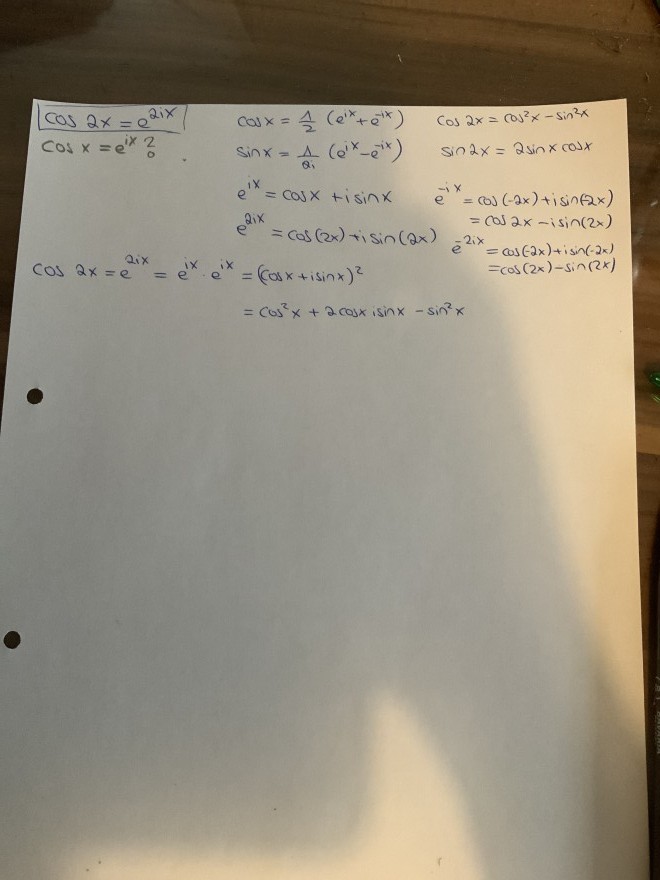 cos 2x = e^{2ix}
cos x = e^{ix} ?
cos x = 1/2 (e^{ix} + e^{-ix})
sin x = 1/2i (e^{ix} - e^{-ix})
cos 2x = cos²x - sin²x
sin 2x = 2 sin x cos x
e^{ix} = cos x + i sin x
e^{2ix} = cos(2x) + i sin(2x)
e^{-ix} = cos(-2x) + i sin(-2x)
= cos 2x - i sin(2x)
e^{-2ix} = cos(-2x) + i sin(-2x)
= cos(2x) - sin(2x)
cos 2x = e^{2ix} = e^{ix} · e^{ix} = (cos x + i sin x)²
= cos²x + 2 cos x i sin x - sin²x